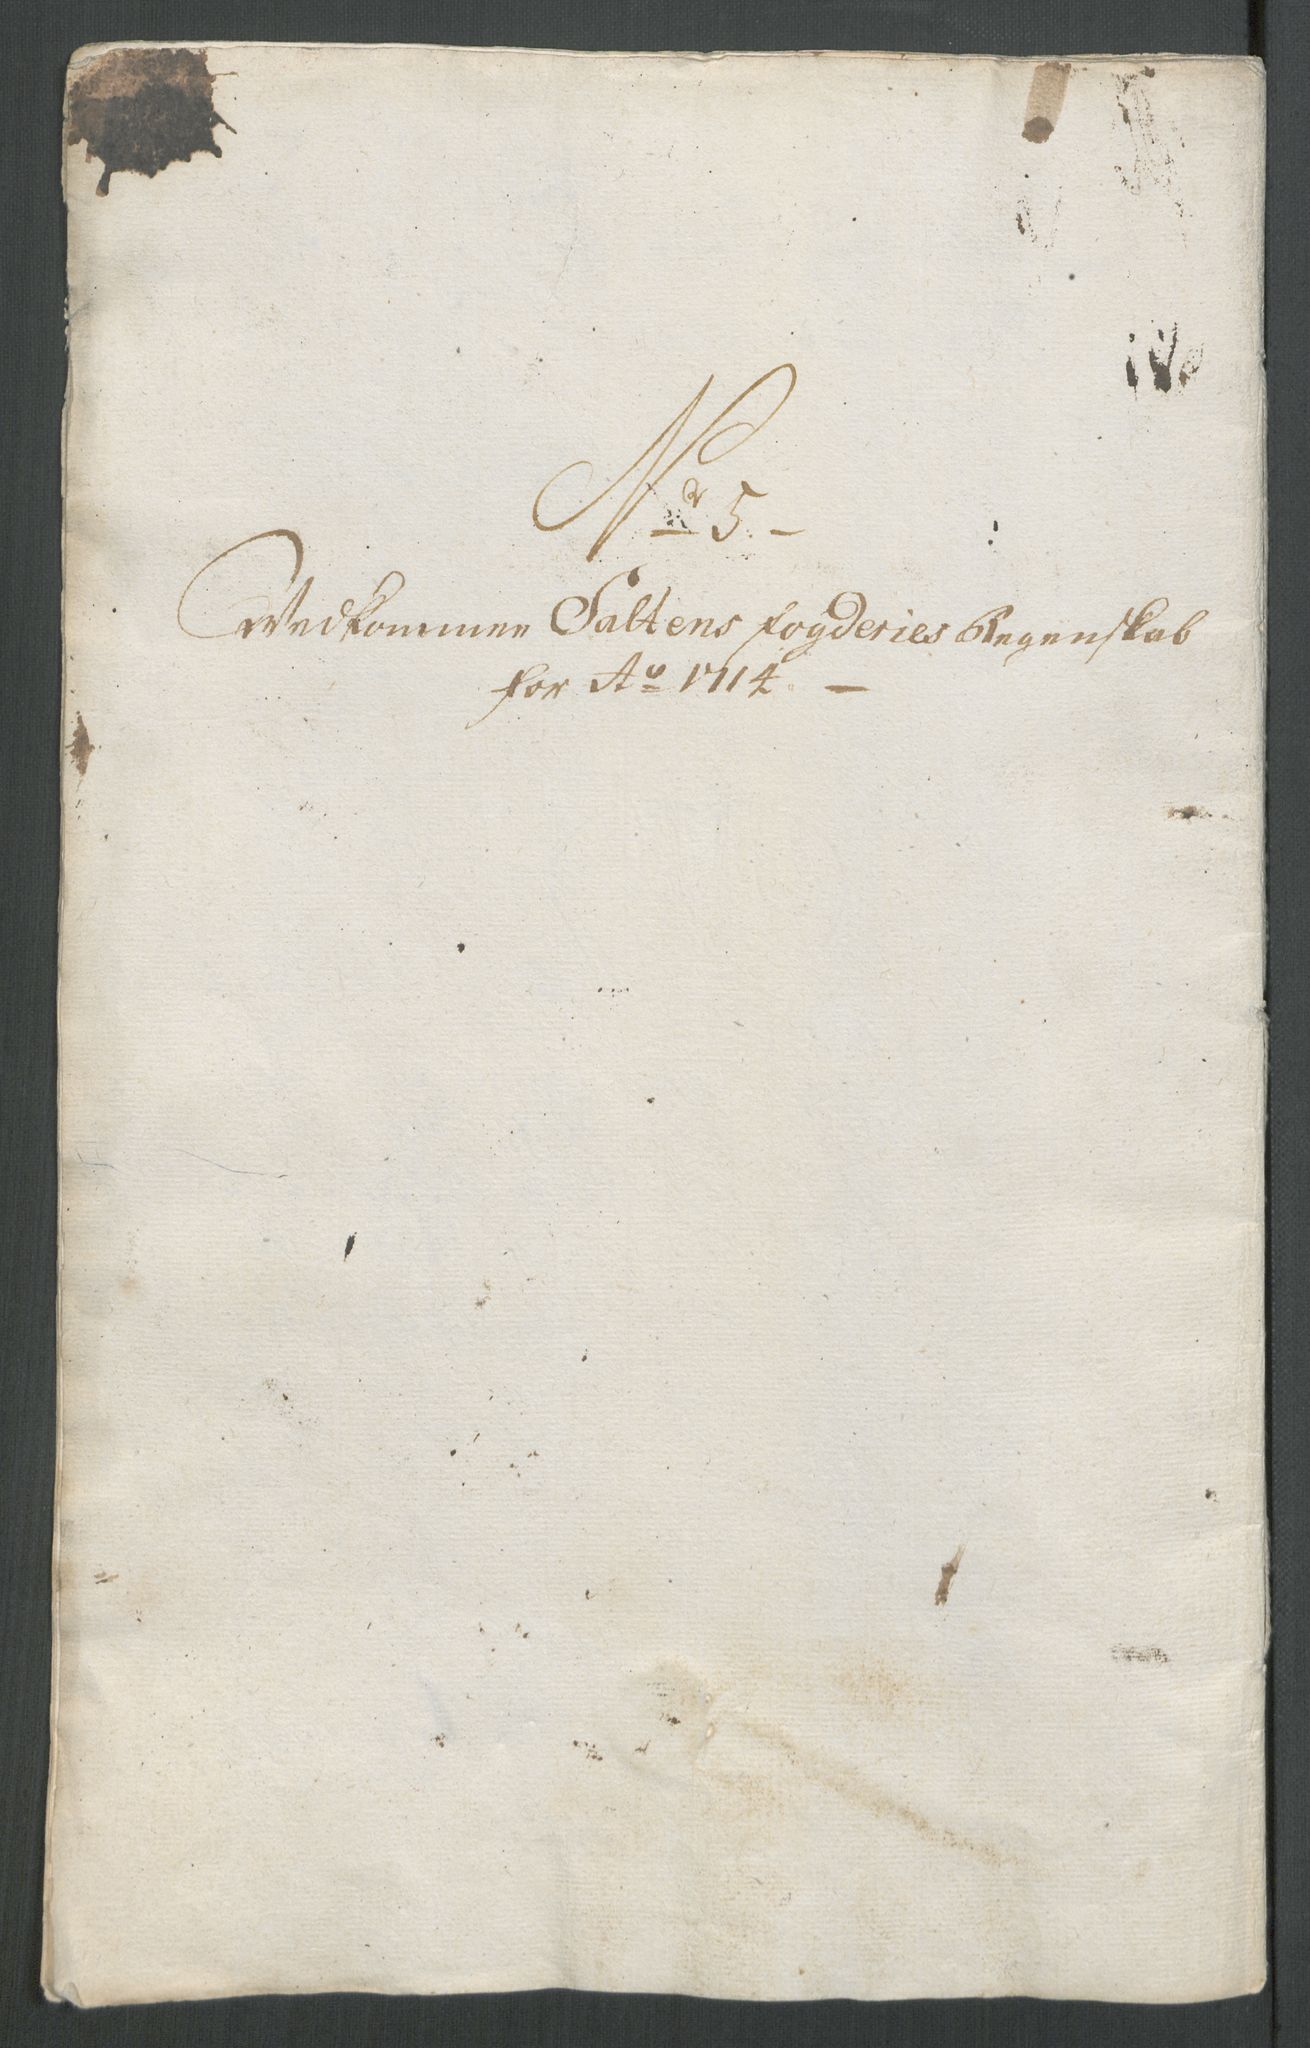 Nr 5.
Vedkommer Saltens fogderies Regenskab
for Ao 1714.